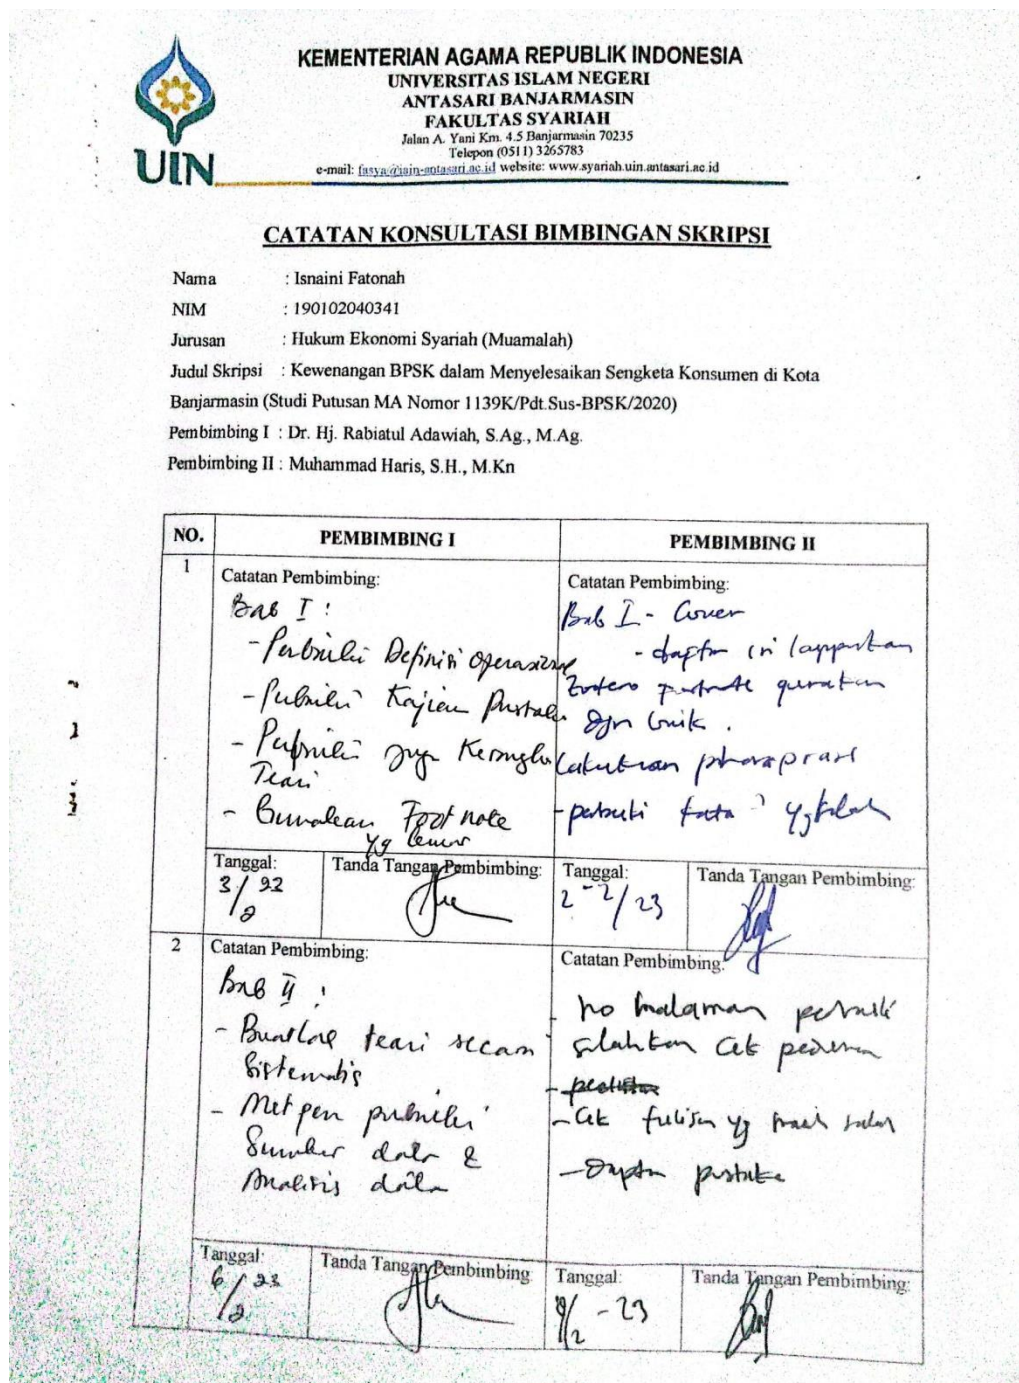 KEMENTERIAN AGAMA REPUBLIK INDONESIA
UNIVERSITAS ISLAM NEGERI
ANTASARI BANJARMASIN
FAKULTAS SYARIAH
Jalan A. Yani Km. 4.5 Banjarmasin 70235
Telepon (0511) 3265783
e-mail: fasya@iain-antasari.ac.id website: www.syariah.uin.antasari.ac.id
UIN
CATATAN KONSULTASI BIMBINGAN SKRIPSI
Nama : Isnaini Fatonah
NIM : 190102040341
Jurusan : Hukum Ekonomi Syariah (Muamalah)
Judul Skripsi : Kewenangan BPSK dalam Menyelesaikan Sengketa Konsumen di Kota
Banjarmasin (Studi Putusan MA Nomor 1139K/Pdt.Sus-BPSK/2020)
Pembimbing I : Dr. Hj. Rabiatul Adawiah, S.Ag., M.Ag.
Pembimbing II : Muhammad Haris, S.H., M.Kn
NO. PEMBIMBING I PEMBIMBING II
1
Catatan Pembimbing:
Bab I :
- Perbaiki Definisi operasional
- Perbaiki Kajian Pustaka
- Perbaiki juga Kerangka
Teori
- Gunakan Foot note
yg benar
Catatan Pembimbing:
Bab I - Cover
- daftar isi
Zotero gunakan
dgn baik.
Lakukan
- perbaiki kata
Tanggal:
3/2 23
Tanda Tangan Pembimbing:
Tanggal:
2-2/23
Tanda Tangan Pembimbing:
2
Catatan Pembimbing:
Bab II :
- Buatlah teori secara
Sistematis
- Metpen perbaiki
Sumber data &
Analisis data
Catatan Pembimbing:
- no halaman perbaiki
silahkan cek pedoman
- Cek tulisan yg masih salah
- Daftar pustaka
Tanggal:
6/2 23
Tanda Tangan Pembimbing:
Tanggal:
/2 - 23
Tanda Tangan Pembimbing: